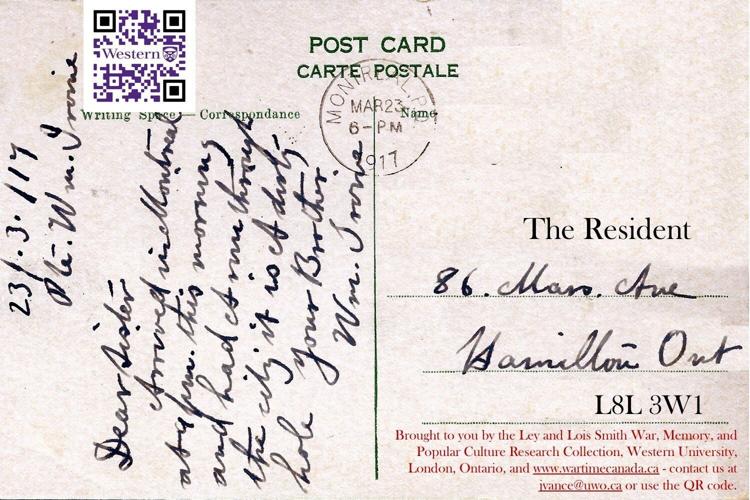 Western
POST CARD
CARTE POSTALE
MONTREAL, P.Q.
MAR 23
6-PM
1917
Writing Space — Correspondance
Name
23/.3./17
Pte. Wm. Irvine
Dear Sister
Arrived in Montreal
at 9 pm. this morning
and had A run through
the city it is A dirty
hole your Brother
Wm. Irvine
The Resident
86. Mars. Ave
Hamilton Ont
L8L 3W1
Brought to you by the Ley and Lois Smith War, Memory, and
Popular Culture Research Collection, Western University,
London, Ontario, and www.wartimecanada.ca - contact us at
jvance@uwo.ca or use the QR code.